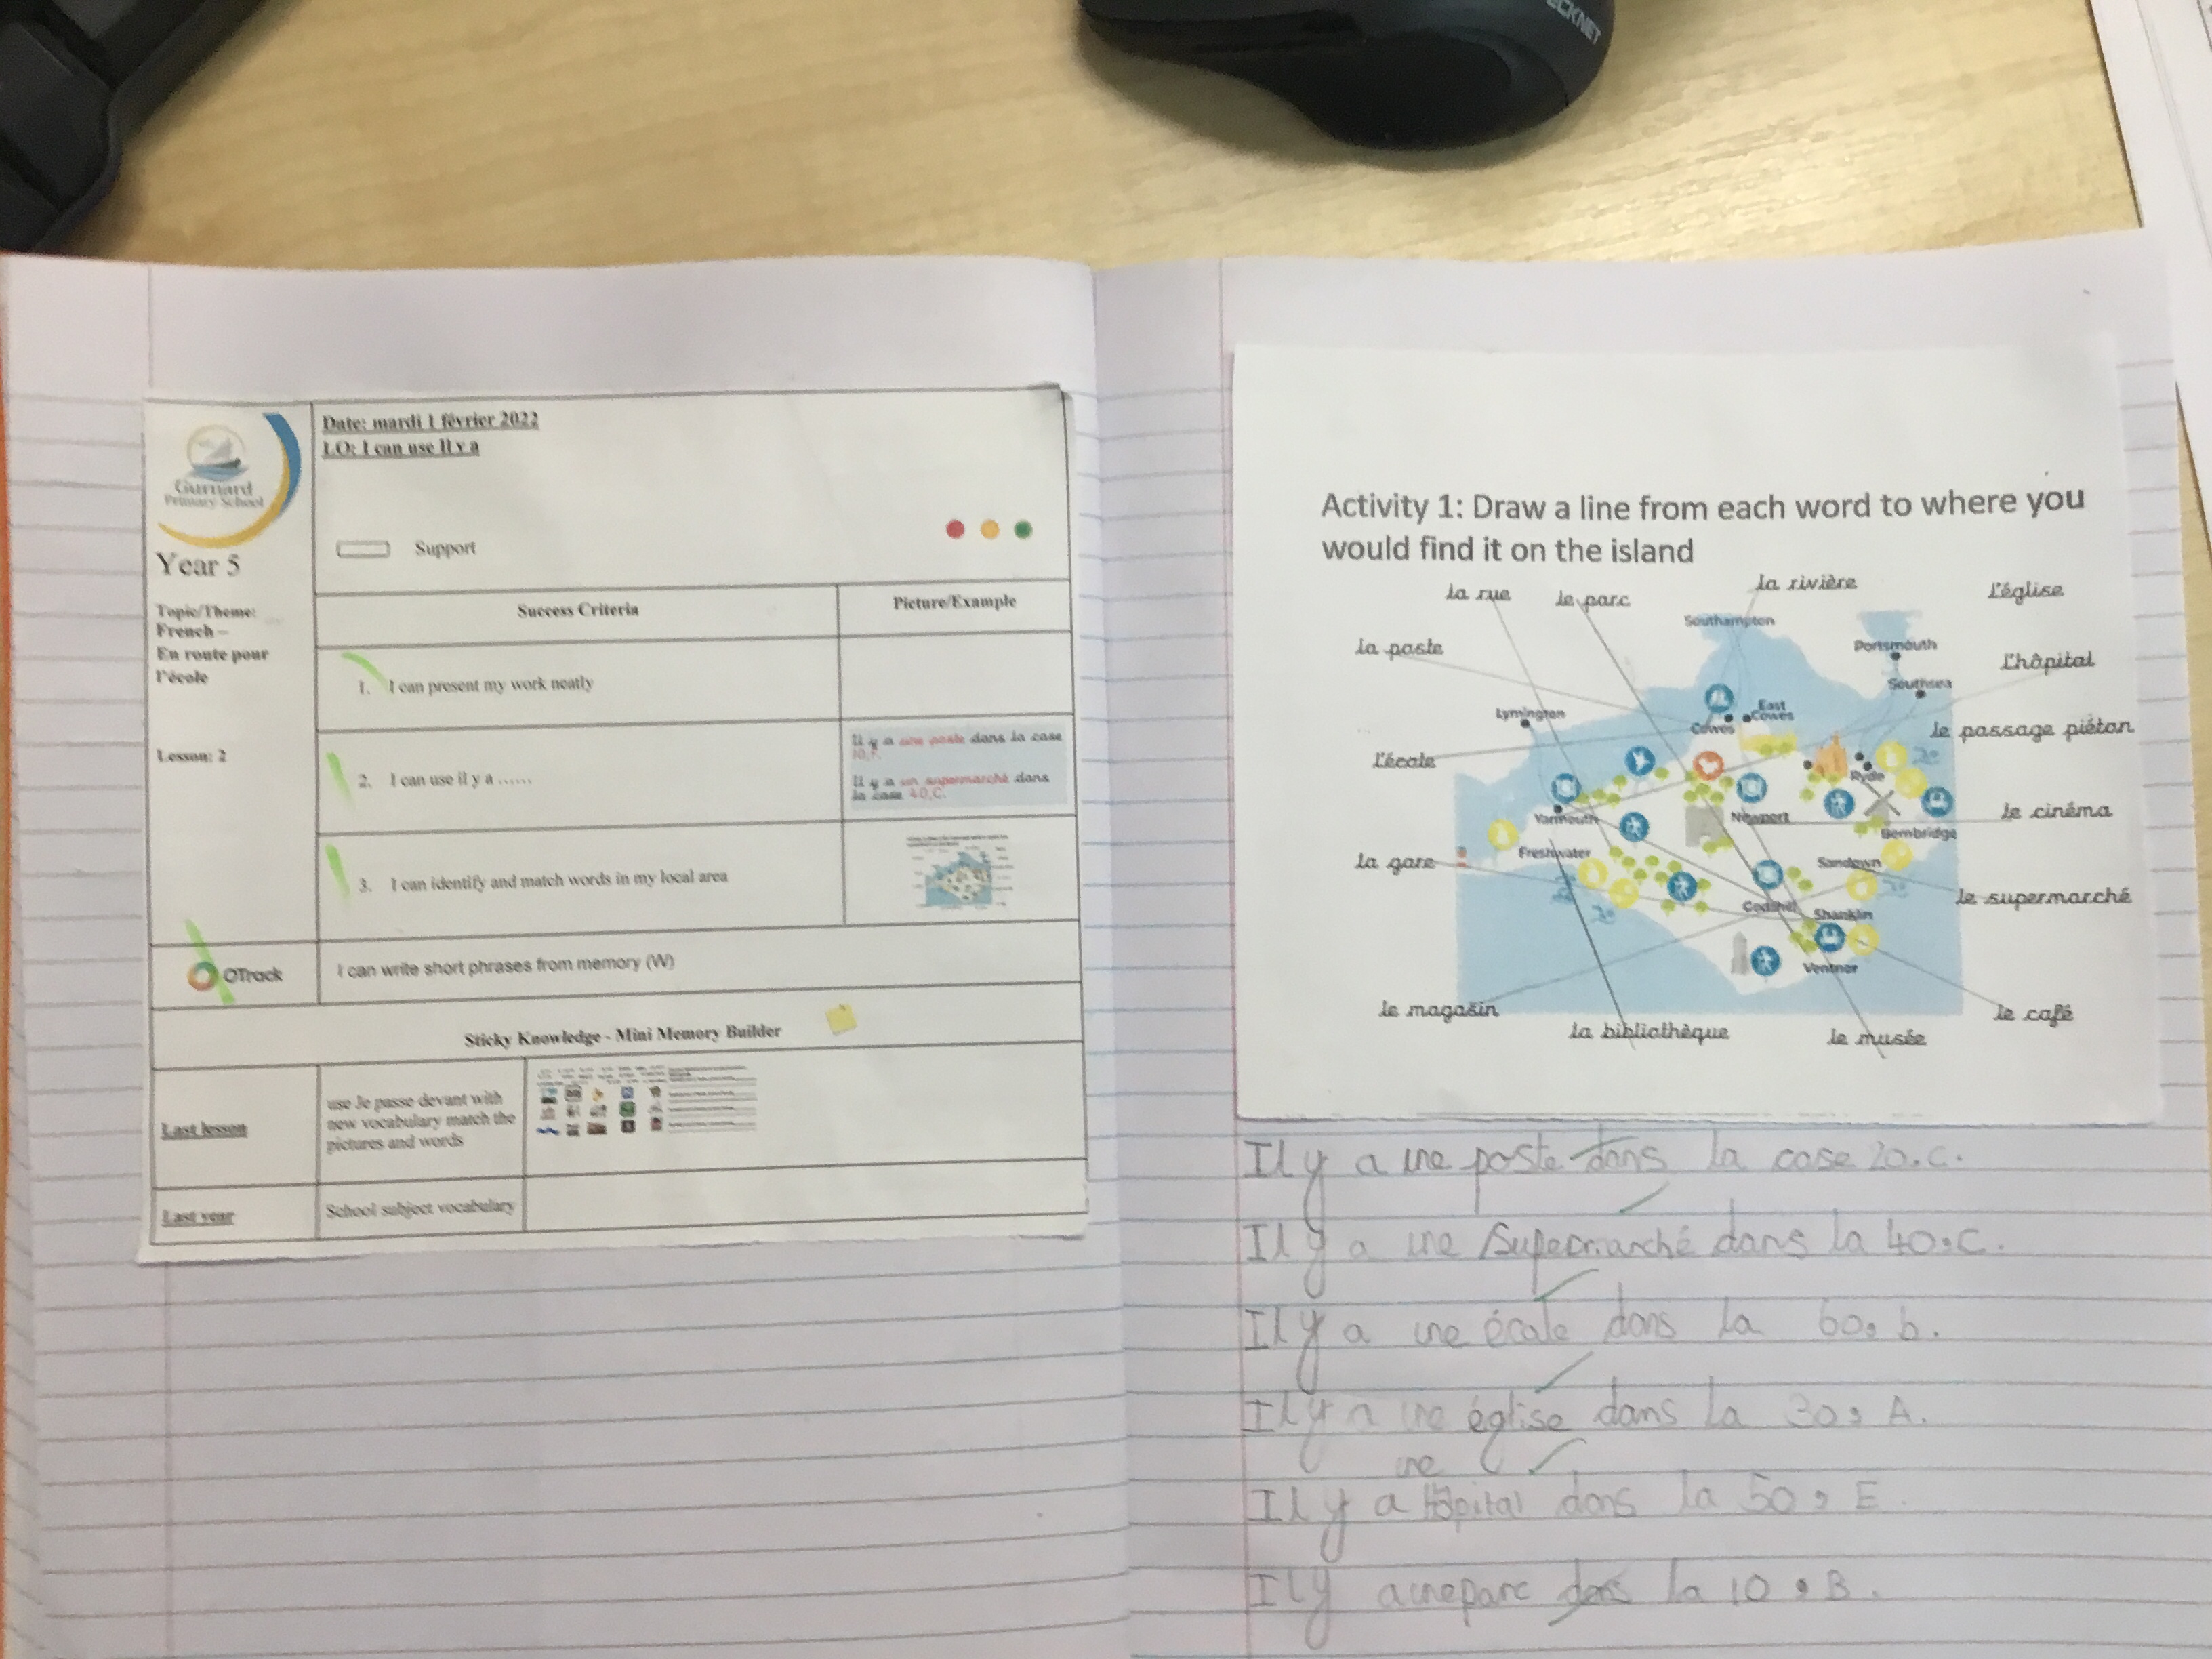 ECKNET
Gurnard
Primary School
Year 5
Topic/Theme:
French –
En route pour
l'école
Lesson: 2
Date: mardi 1 février 2022
LO: I can use Il y a
Support
Success Criteria
Picture/Example
1. I can present my work neatly
2. I can use il y a ......
Il y a une poste dans la case
10,F.
Il y a un supermarché dans
la case 40,C.
3. I can identify and match words in my local area
OTrack
I can write short phrases from memory (W)
Sticky Knowledge - Mini Memory Builder
Last lesson
use Je passe devant with
new vocabulary match the
pictures and words
Last year
School subject vocabulary
Activity 1: Draw a line from each word to where you
would find it on the island
la rue
le parc
la rivière
l'église
la poste
Southampton
Portsmouth
l'hôpital
Southsea
Lymington
East
Cowes
Cowes
le passage piéton
l'école
Ryde
Yarmouth
Newport
le cinéma
Bembridge
la gare
Freshwater
Sandown
le supermarché
Godshill
Shanklin
Ventnor
le magasin
la bibliothèque
le musée
le café
Il y a une poste dans la case 20.C.
Il y a une Supermarché dans la 40,C.
Il y a une école dans la 60, b.
Il y a une église dans la 30, A.
une
Il y a Hôpital dans la 50, E.
Il y a une parc dans la 10, B.